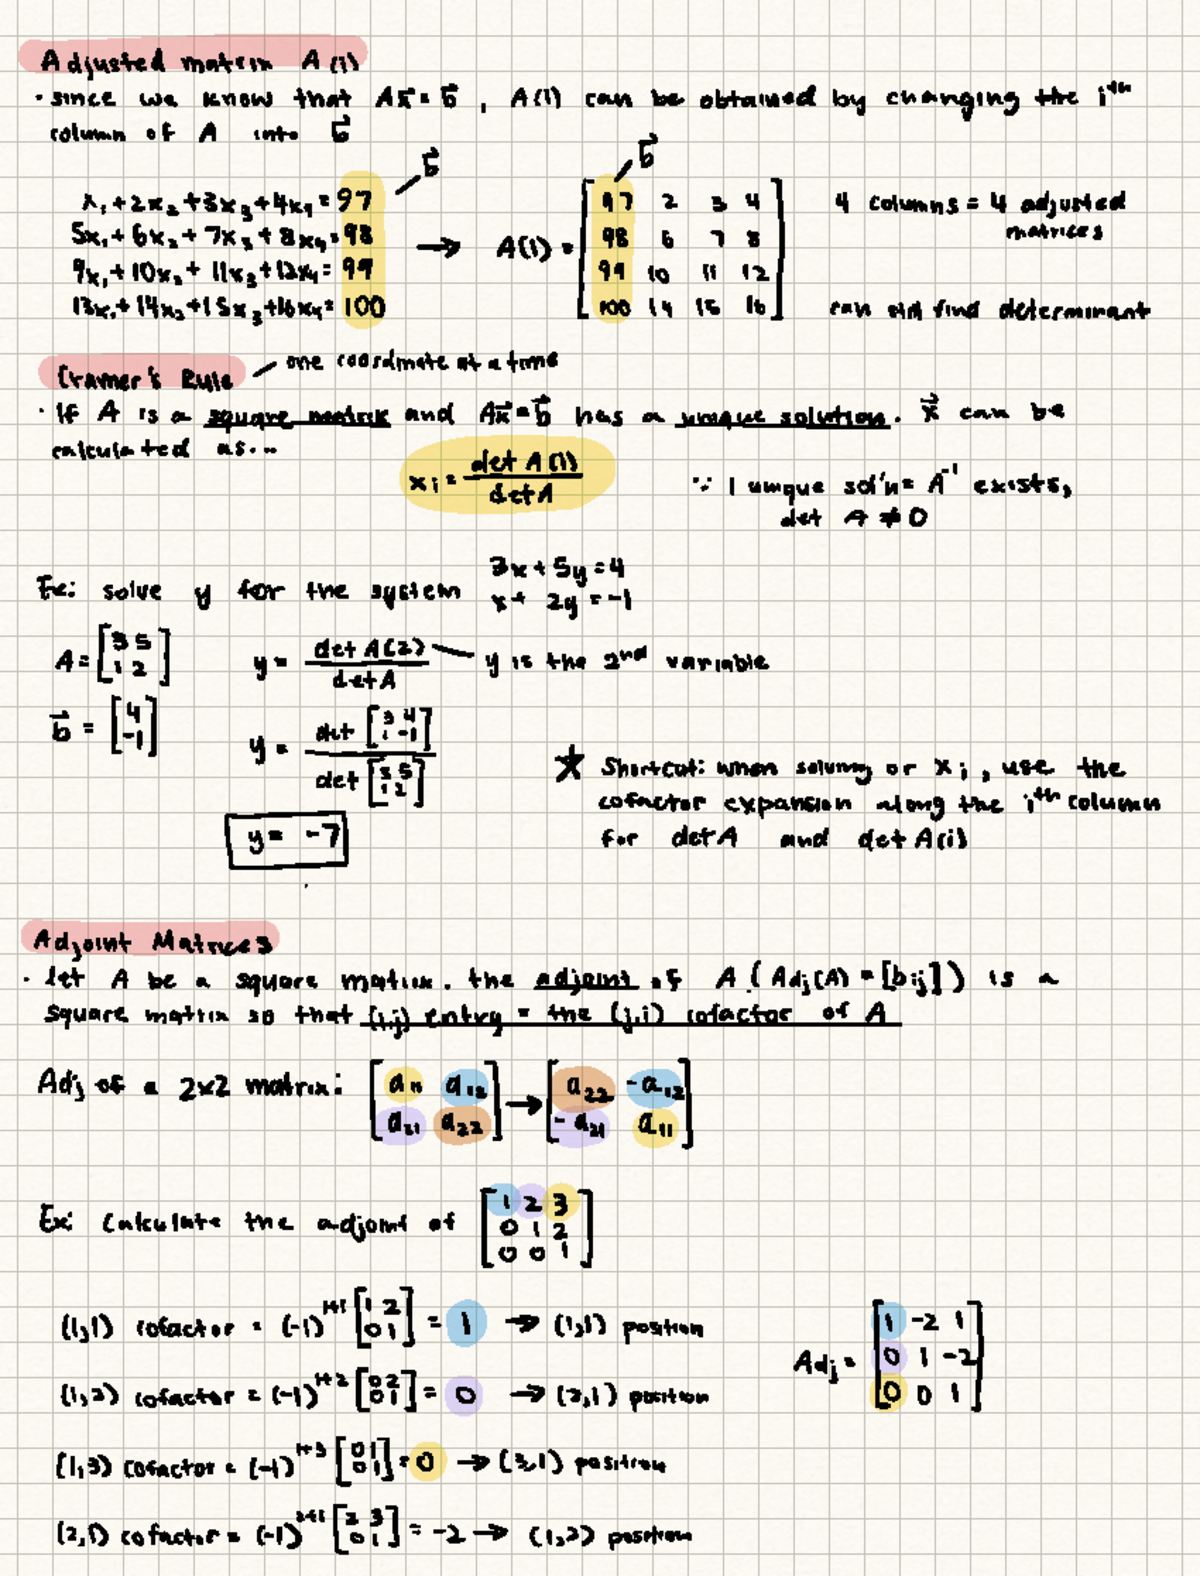 Adjusted matrix A(i)
· since we know that Ax⃗ = b⃗ , A(i) can be obtained by changing the iᵗʰ
column of A into b⃗
x₁+2x₂+3x₃+4x₄=97
5x₁+6x₂+7x₃+8x₄=98
9x₁+10x₂+11x₃+12x₄=99
13x₁+14x₂+15x₃+16x₄=100
b⃗
→ A(1) =
b⃗
97 2 3 4
98 6 7 8
99 10 11 12
100 14 15 16
4 columns = 4 adjusted
matrices
can find determinant
Cramer's Rule
one coordinate at a time
· If A is a square matrix and Ax⃗=b⃗ has a unique solution. x⃗ can be
calculated as...
xᵢ = det A(i) / det A
∵ 1 unique sol'n = A⁻¹ exists,
det A ≠ 0
Ex: solve y for the system
3x + 5y = 4
x + 2y = -1
A = [3 5
1 2]
b⃗ = [4
-1]
y = det A(2) / det A
y is the 2ⁿᵈ variable
y = det [3 4
1 -1] / det [3 5
1 2]
y = -7
★ Shortcut: when solving or xᵢ, use the
cofactor expansion along the iᵗʰ column
for det A and det A(i)
Adjoint Matrices
· let A be a square matrix. the adjoint of A (Adj(A) = [bij]) is a
square matrix so that (i,j) entry = the (j,i) cofactor of A
Adj of a 2x2 matrix: [a₁₁ a₁₂
a₂₁ a₂₂] → [a₂₂ -a₁₂
-a₂₁ a₁₁]
Ex: Calculate the adjoint of [1 2 3
0 1 2
0 0 1]
(1,1) cofactor = (-1)¹⁺¹ [1 2
0 1] = 1 → (1,1) position
(1,2) cofactor = (-1)¹⁺² [0 2
0 1] = 0 → (2,1) position
(1,3) cofactor = (-1)¹⁺³ [0 1
0 1] = 0 → (3,1) position
(2,1) cofactor = (-1)²⁺¹ [2 3
0 1] = -2 → (1,2) position
Adj = [1 -2 1
0 1 -2
0 0 1]